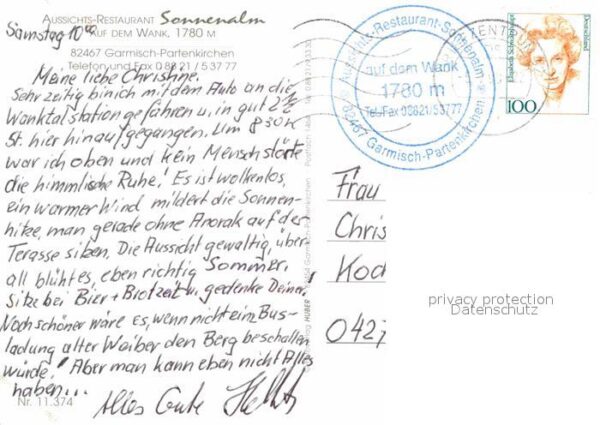 Aussichts-Restaurant Sonnenalm
auf dem Wank, 1780 m
82467 Garmisch-Partenkirchen
Telefon und Fax 0 88 21 / 5 37 77
Samstag 10⁰⁰
Meine liebe Christine.
Sehr zeitig bin ich mit dem Auto an die
Wanktalstation gefahren u. in gut 2½
St. hier hinaufgegangen. Um 8 30 h
war ich oben und kein Mensch störte
die himmlische Ruhe! Es ist wolkenlos,
ein warmer Wind mildert die Sonnen-
hitze, man gerade ohne Anorak auf der
Terasse sitzen. Die Aussicht gewaltig, über-
all blüht es, eben richtig Sommer.
Sitze bei Bier + Brotzeit u. gedenke Deiner!
Noch schöner wäre es, wenn nicht ein Bus-
ladung alter Weiber den Berg beschallen
würde! Aber man kann eben nicht Alles
haben...
Alles Gute
Nr. 11.374
HUBER
Aussichts-Restaurant-Sonnenalm
auf dem Wank
1780 m
Tel./Fax 08821/53777
82467 Garmisch-Partenkirchen
Deutschland
100
Frau
Chris
Koc
042
privacy protection
Datenschutz